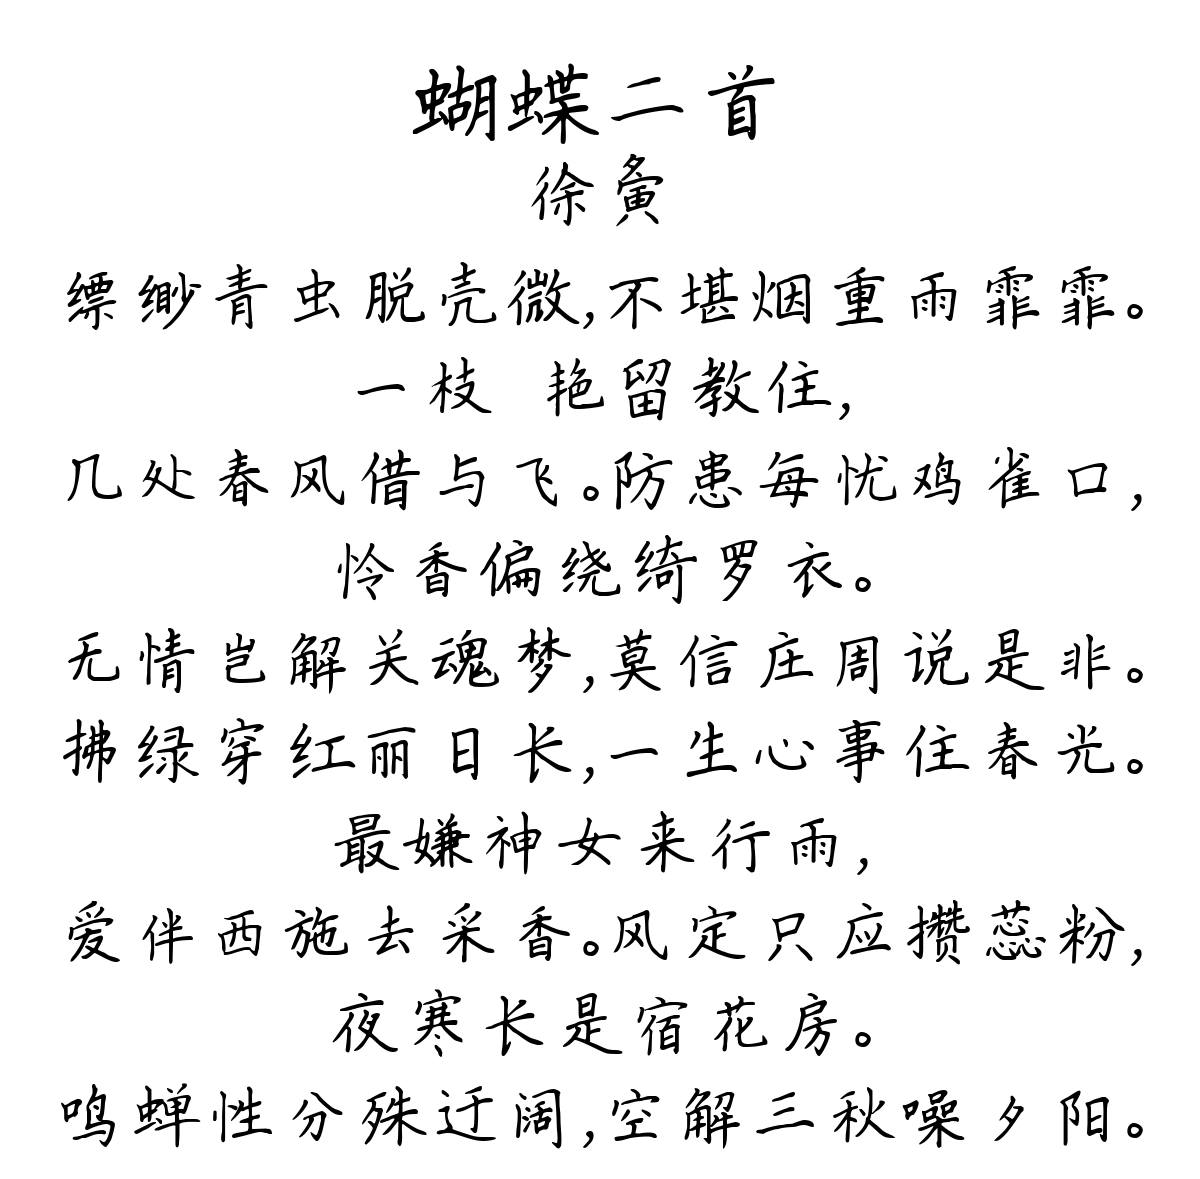 蝴蝶二首
徐夤
缥缈青虫脱壳微,不堪烟重雨霏霏。
一枝 艳留教住,
几处春风借与飞。防患每忧鸡雀口,
怜香偏绕绮罗衣。
无情岂解关魂梦,莫信庄周说是非。
拂绿穿红丽日长,一生心事住春光。
最嫌神女来行雨,
爱伴西施去采香。风定只应攒蕊粉,
夜寒长是宿花房。
鸣蝉性分殊迂阔,空解三秋噪夕阳。